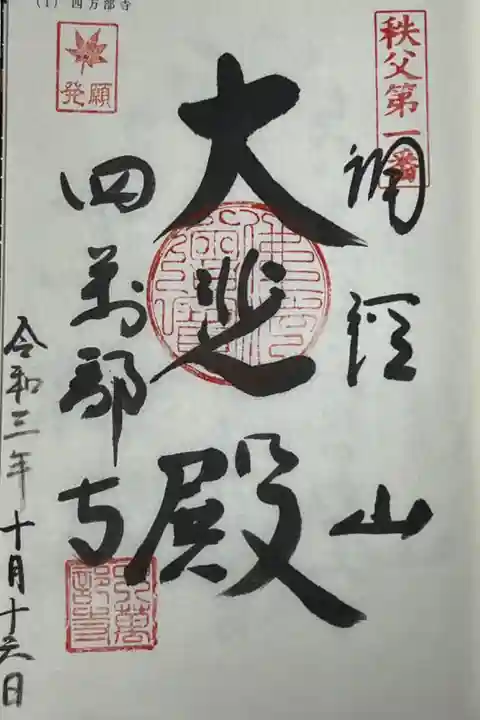 (1) 四万部寺
秩父第一番
誦経山
大悲殿
四萬部寺
発願
令和三年十月十六日